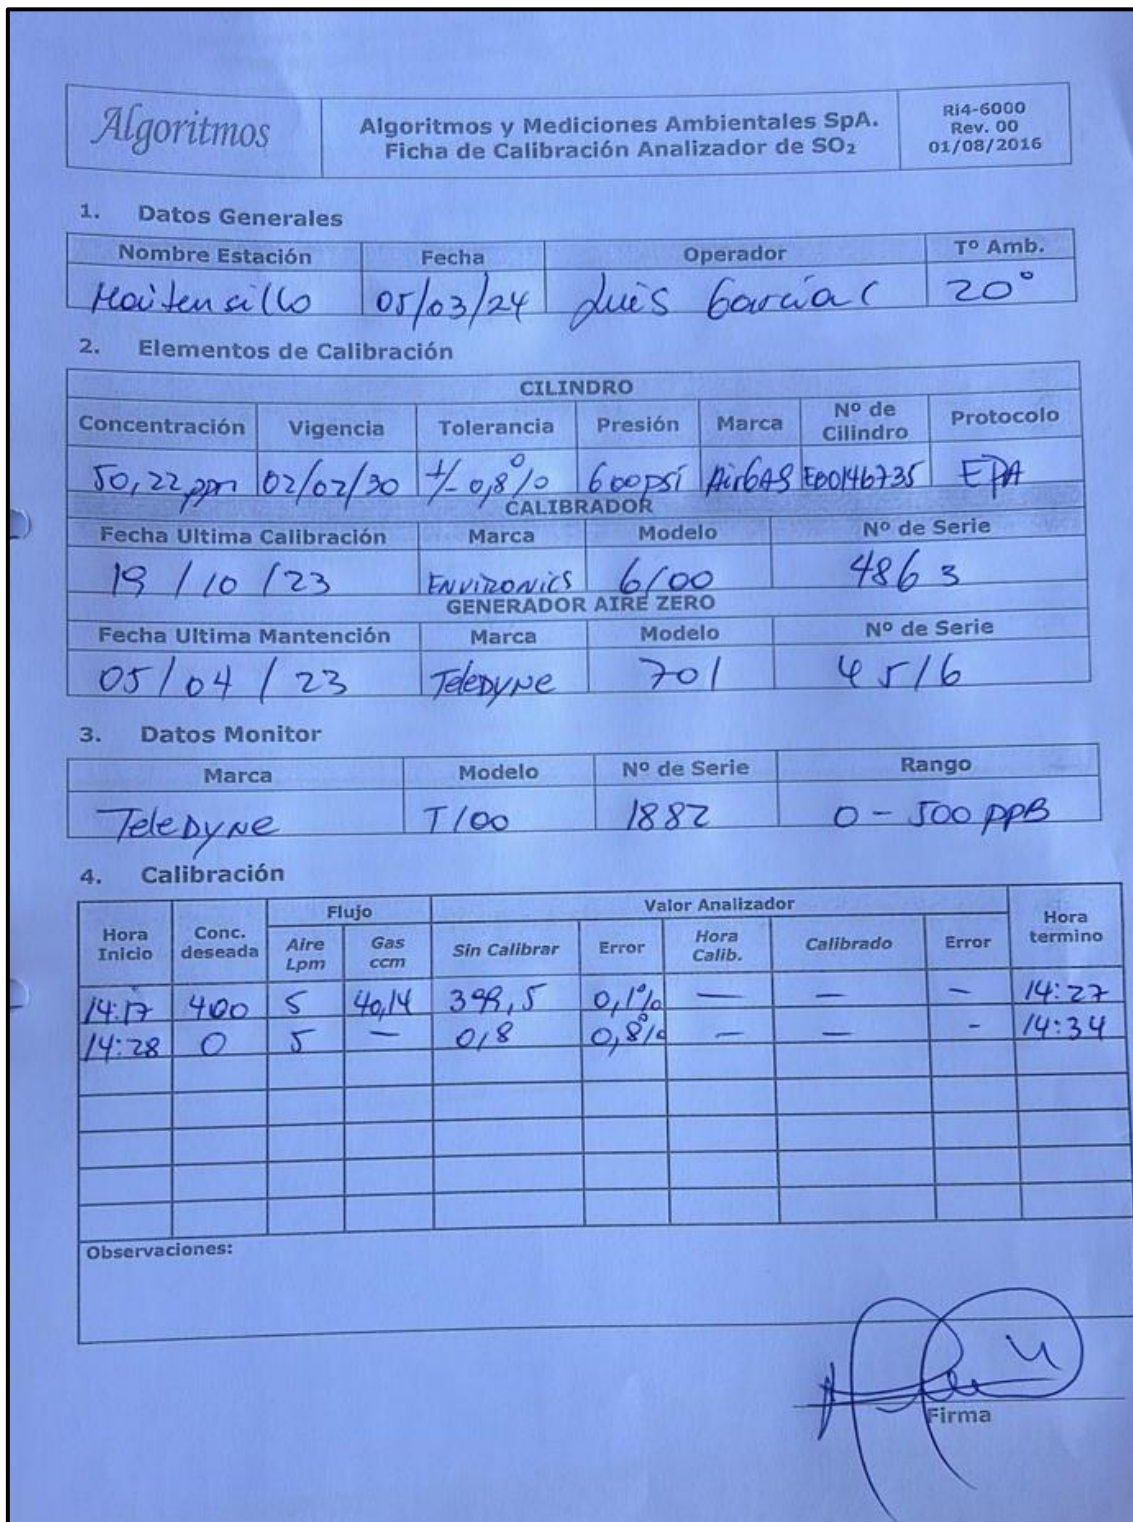 Algoritmos
Algoritmos y Mediciones Ambientales SpA.
Ficha de Calibración Analizador de SO₂
Ri4-6000
Rev. 00
01/08/2016
1. Datos Generales
Nombre Estación Fecha Operador Tº Amb.
Maitencillo 05/03/24 Luis García C 20°
2. Elementos de Calibración
CILINDRO
Concentración Vigencia Tolerancia Presión Marca Nº de Cilindro Protocolo
50,22 ppm 02/02/30 +/- 0,8% 600psi AirGAS EB0146735 EPA
CALIBRADOR
Fecha Ultima Calibración Marca Modelo Nº de Serie
19/10/23 ENVIRONICS 6100 4863
GENERADOR AIRE ZERO
Fecha Ultima Mantención Marca Modelo Nº de Serie
05/04/23 TeleDyNe 701 4516
3. Datos Monitor
Marca Modelo Nº de Serie Rango
TeleDyNe T100 1882 0 - 500 ppB
4. Calibración
Flujo Valor Analizador
Hora Inicio Conc. deseada Aire Lpm Gas ccm Sin Calibrar Error Hora Calib. Calibrado Error Hora termino
14:17 400 5 40,14 399,5 0,1% — — — 14:27
14:28 0 5 — 0,8 0,8% — — — 14:34
Observaciones:
Firma